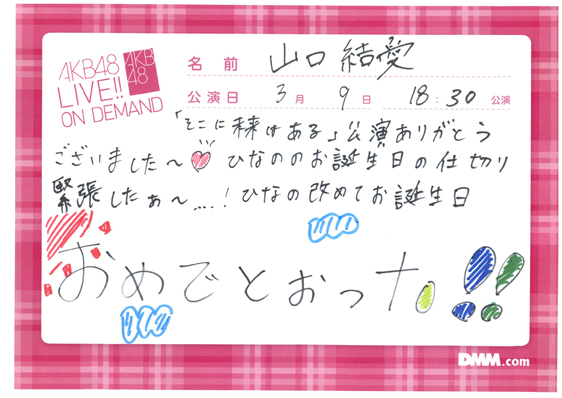 AKB48
LIVE!!
ON DEMAND
AKB
48
名前 山口 結愛
公演日 3月 9日 18:30 公演
「そこに未来はある」公演ありがとう
ございました〜 ひなののお誕生日の仕切り
緊張したぁ〜....! ひなの改めてお誕生日
おめでとおっ
DMM.com